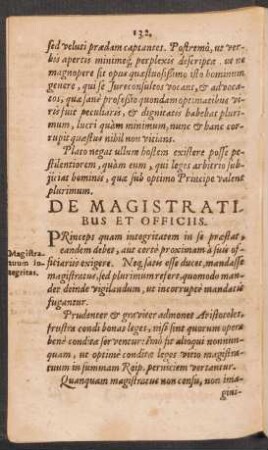 132.
sed veluti prædam captantes. Postremò, ut ver-
bis apertis minimeq; perplexis descriptæ, ut ne
magnopere sit opus quæstuosissimo isto hominum
genere, qui se Iureconsultos vocant, & advoca-
tos, quæ sanè professio quondam optimatibus vi-
ris fuit peculiaris, & dignitatis habebat pluri-
mum, lucri quàm minimum, nunc & hanc cor-
rupit quæstus nihil non vitians.
Plato negat ullum hostem existere posse pe-
stilentiorem, quàm eum, qui leges arbitrio sub-
jiciat hominis, quæ sub optimo Principe valent
plurimum.
DE MAGISTRATI-
BUS ET OFFICIIS.
PRinceps quam integritatem in se præstat,
eandem debet, aut certè proximam à suis of-
Magistra-
tuum in-
tegritas.
ficiariis exigere. Neq; satis esse ducat, mandasse
magistratus, sed plurimum refert, quomodo man-
det, deinde vigilandum, ut incorruptè mandatis
fugantur.
Prudenter & graviter admonet Aristoteles,
frustra condi bonas leges, nisi sint quorum opera
benè condita serventur: Imò fit alioqui nonnun-
quam, ut optimè conditæ leges vitio magistra-
tuum in summam Reip. perniciem vertantur.
Quanquam magistratus non censu, non ima-
gini-